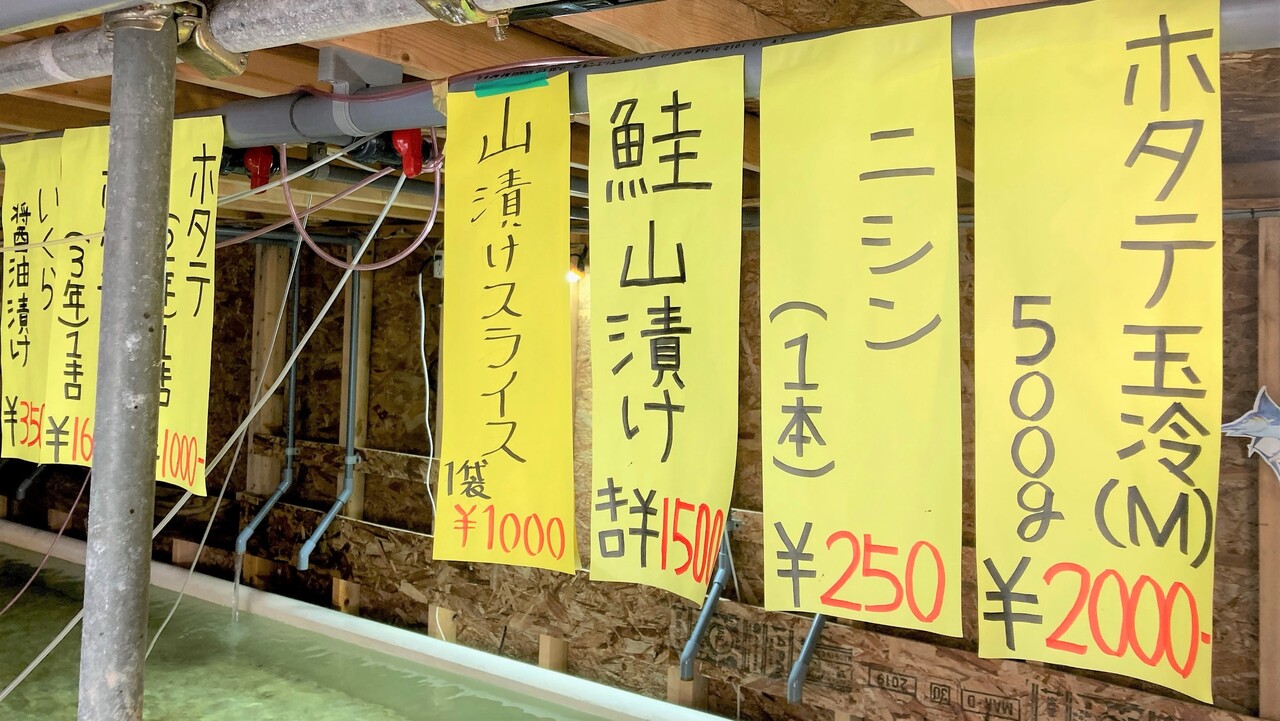 ホタテ玉冷(M)
500g
¥2000-
ニシン
(1本)
¥250
鮭山漬け
¥1500
山漬けスライス
1袋
¥1000
ホタテ
1000-
(3年)1吉
¥16
いくら
醤油漬け
¥350
2019